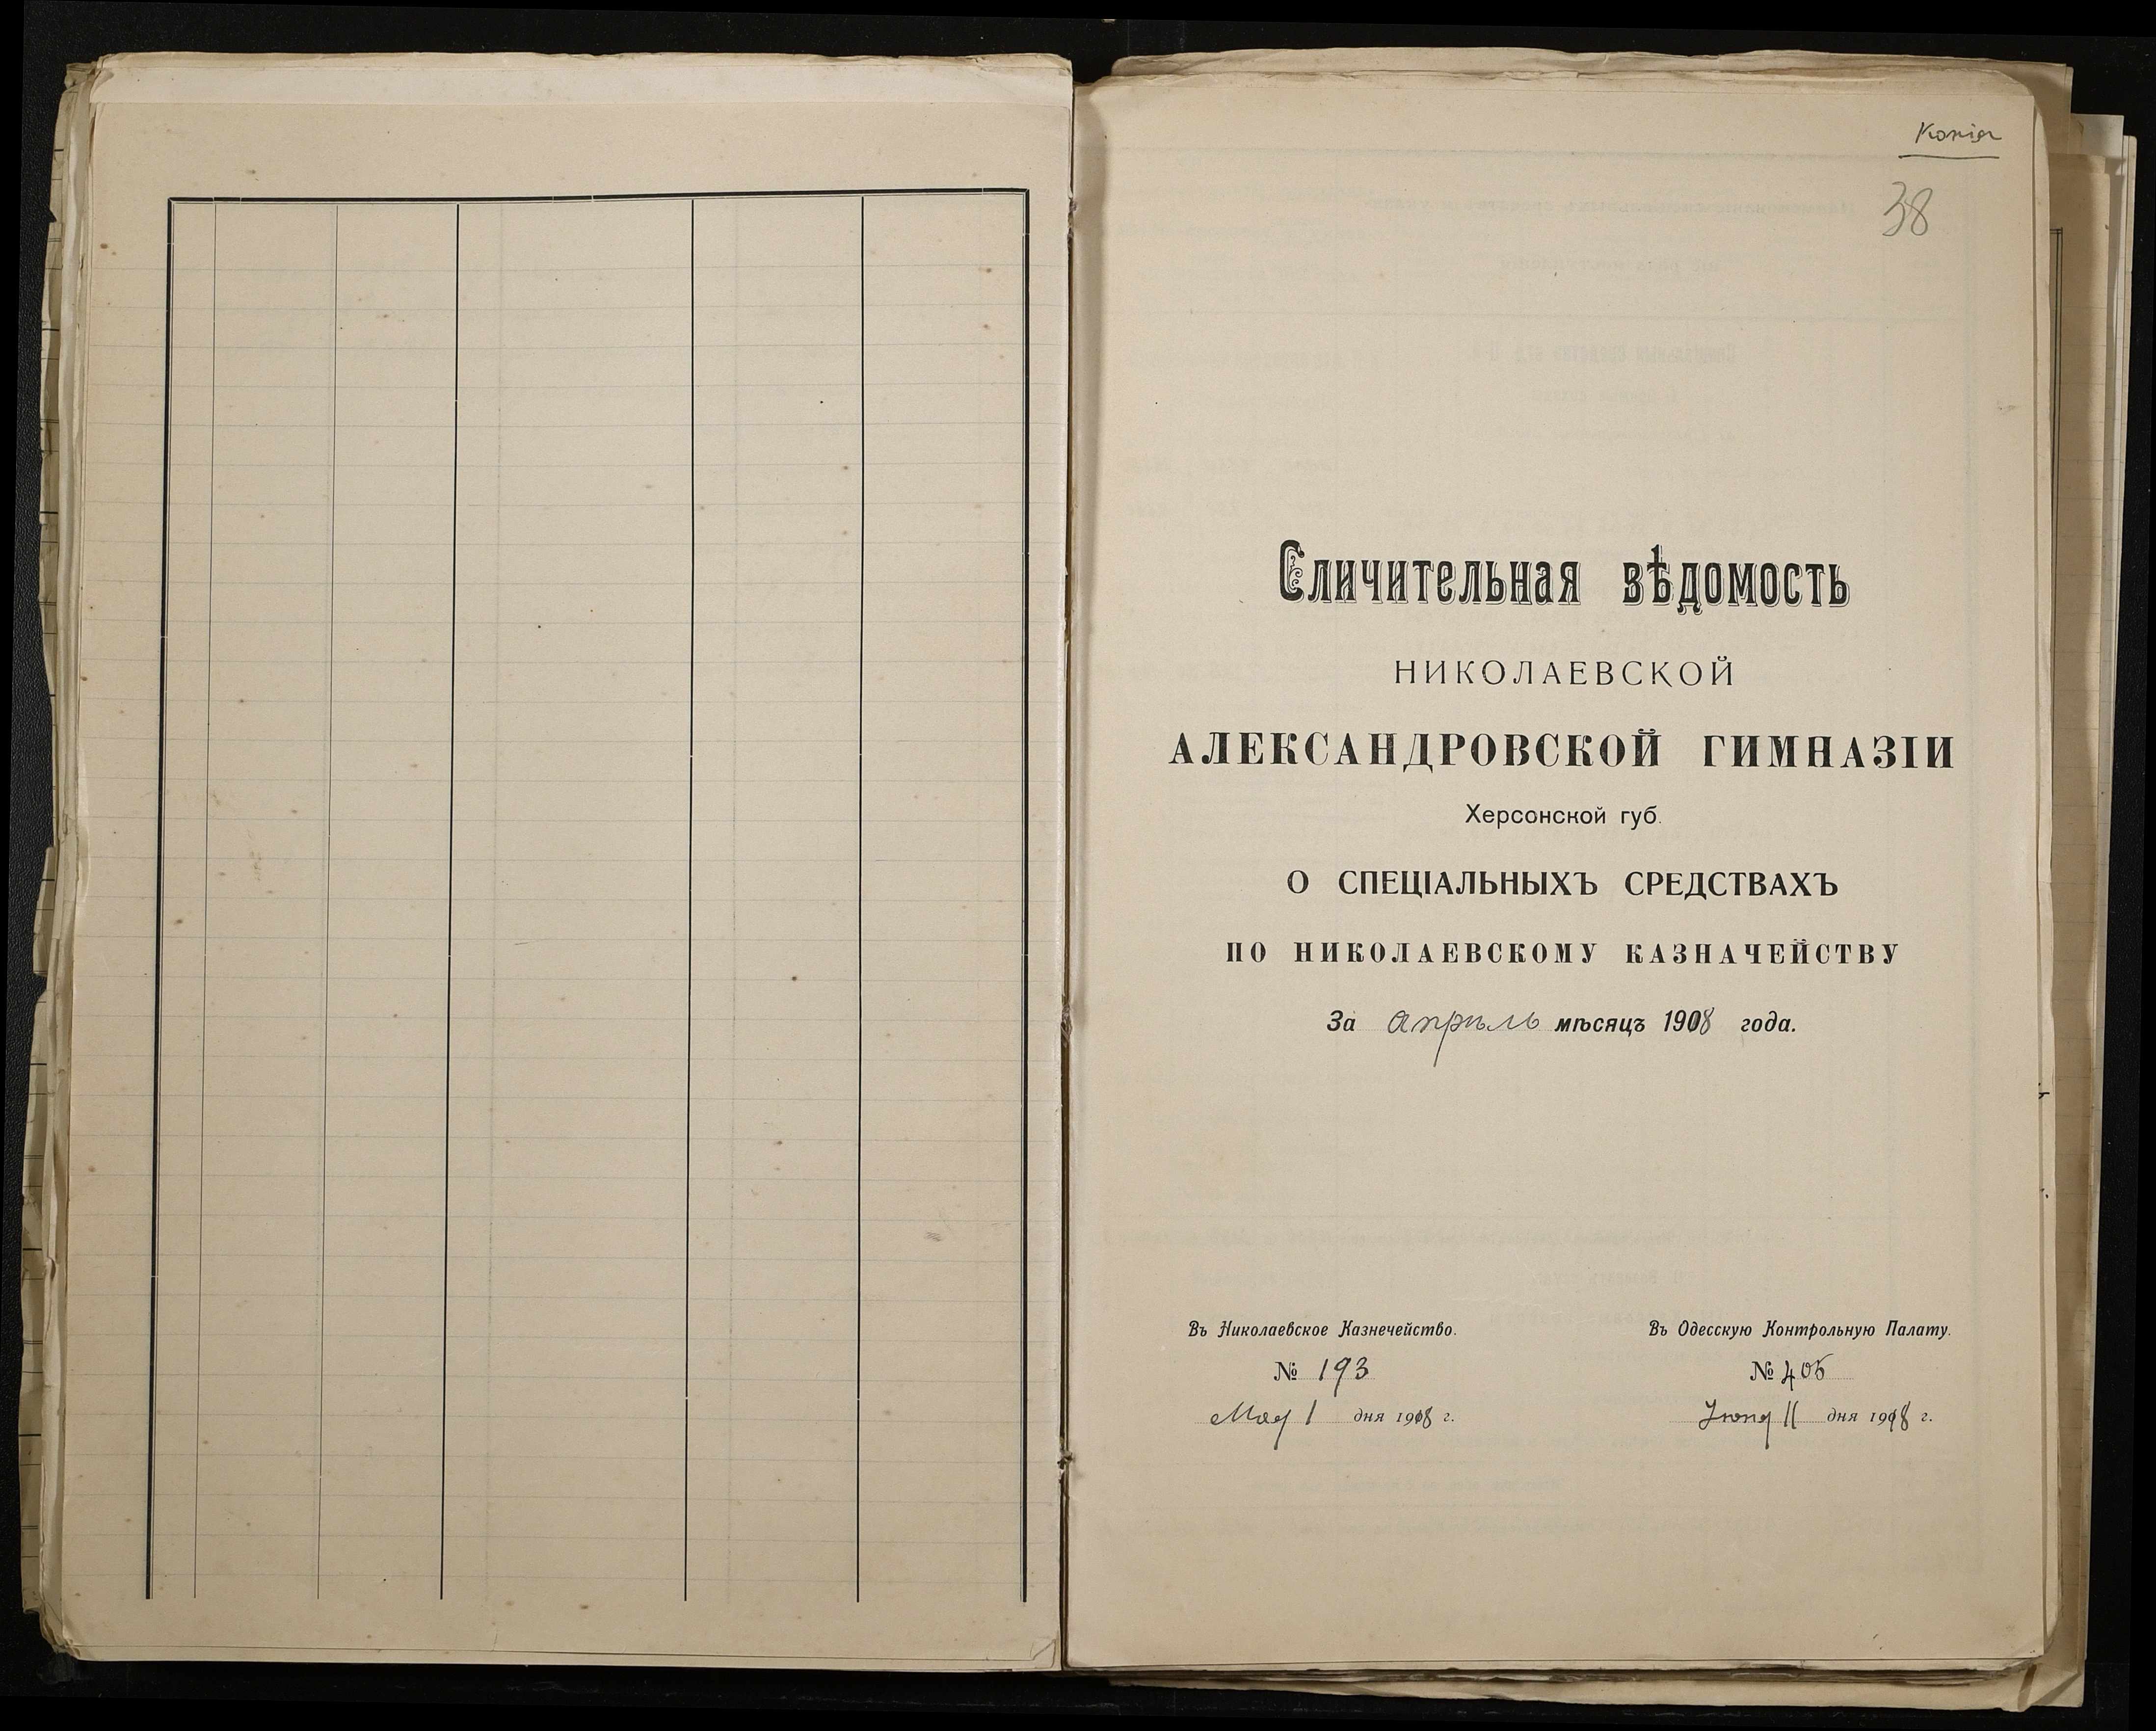 Копія
38
Сличительная вѣдомость
НИКОЛАЕВСКОЙ
АЛЕКСАНДРОВСКОЙ ГИМНАЗІИ
Херсонской губ.
О СПЕЦІАЛЬНЫХЪ СРЕДСТВАХЪ
ПО НИКОЛАЕВСКОМУ КАЗНАЧЕЙСТВУ
За апрѣль мѣсяцъ 1908 года.
Въ Николаевское Казнечейство. Въ Одесскую Контрольную Палату.
№ 193 № 405
Мая 1 дня 1908 г. Іюня 11 дня 1908 г.